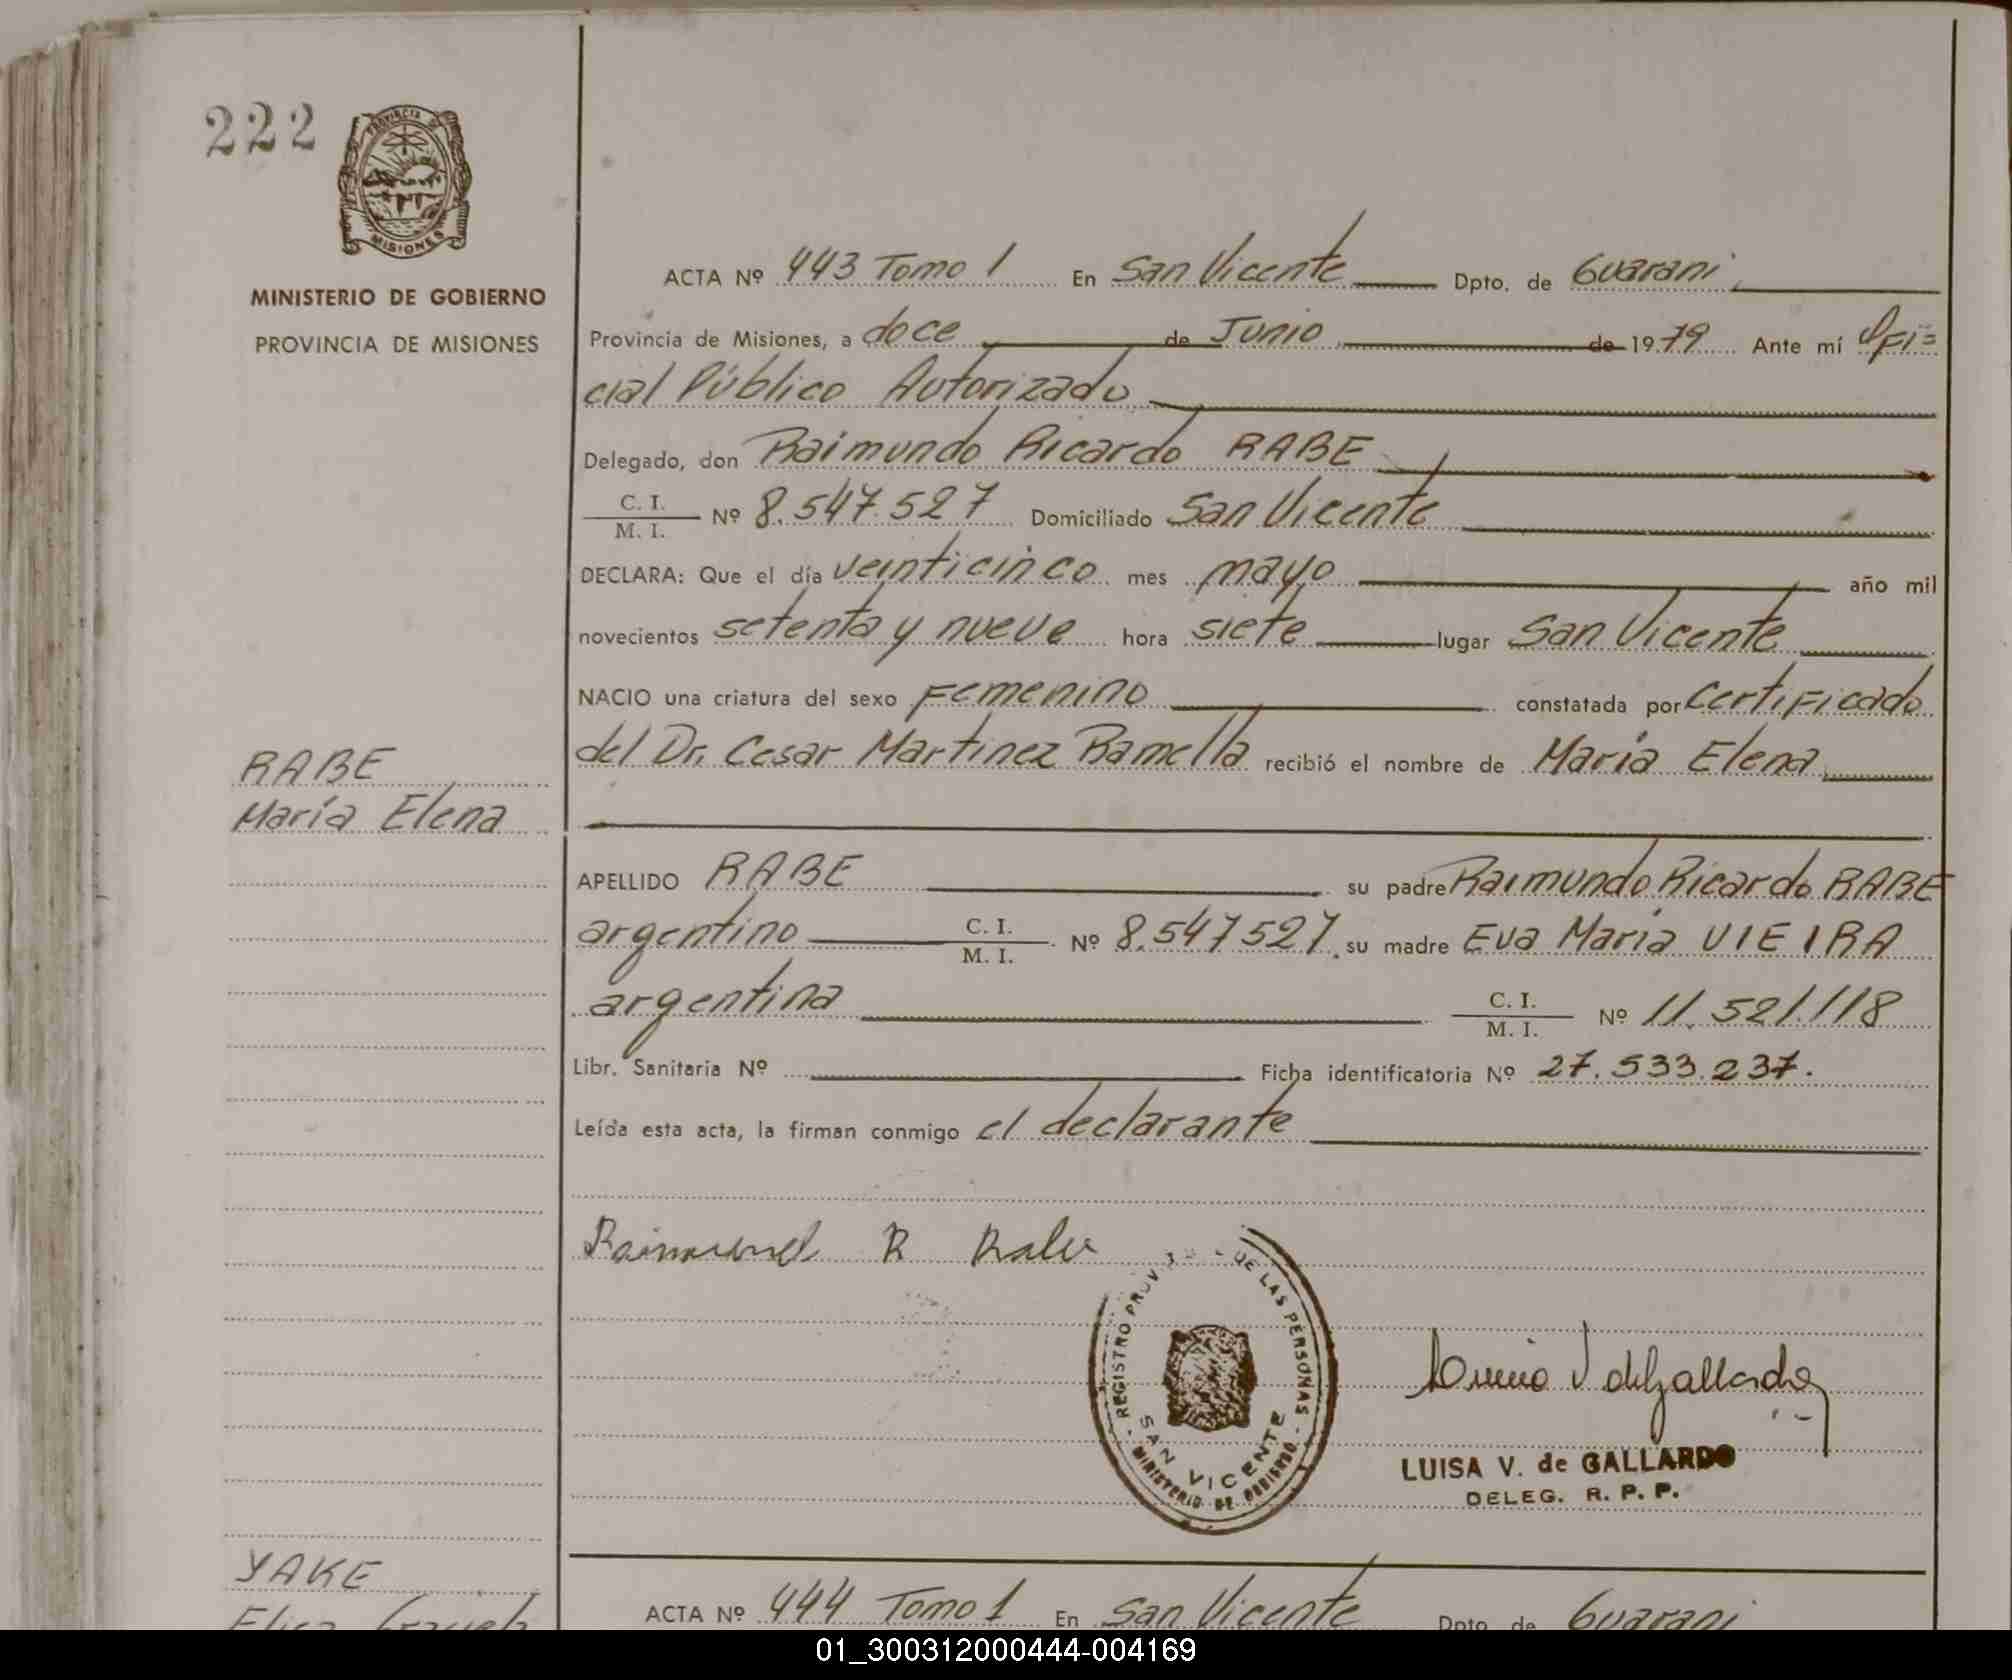 222
PROVINCIA DE
MISIONES
MINISTERIO DE GOBIERNO
PROVINCIA DE MISIONES
ACTA Nº 443 Tomo 1 En San Vicente Dpto. de Guarani
Provincia de Misiones, a doce de Junio de 1979 Ante mí Ofi=
cial Público Autorizado
Delegado, don Raimundo Ricardo RABE
C. I.
M. I. Nº 8.547.527 Domiciliado San Vicente
DECLARA: Que el día veinticinco mes mayo año mil
novecientos setenta y nueve hora siete lugar San Vicente
NACIO una criatura del sexo Femenino constatada por Certificado
del Dr. Cesar Martinez Ramella recibió el nombre de María Elena
RABE
María Elena
APELLIDO RABE su padre Raimundo Ricardo RABE
argentino C. I. M. I. Nº 8.547527. su madre Eva María VIEIRA
argentina C. I. M. I. Nº 11.521.118
Libr. Sanitaria Nº Ficha identificatoria Nº 27.533.237.
Leída esta acta, la firman conmigo el declarante
Raimund R Rabe
REGISTRO PROV DE LAS PERSONAS
SAN VICENTE
MINISTERIO DE GOBIERNO
LUISA V. de GALLARDO
DELEG. R. P. P.
YAKE
ACTA Nº 444 Tomo 1 En San Vicente Dpto. de Guarani
01_300312000444-004169